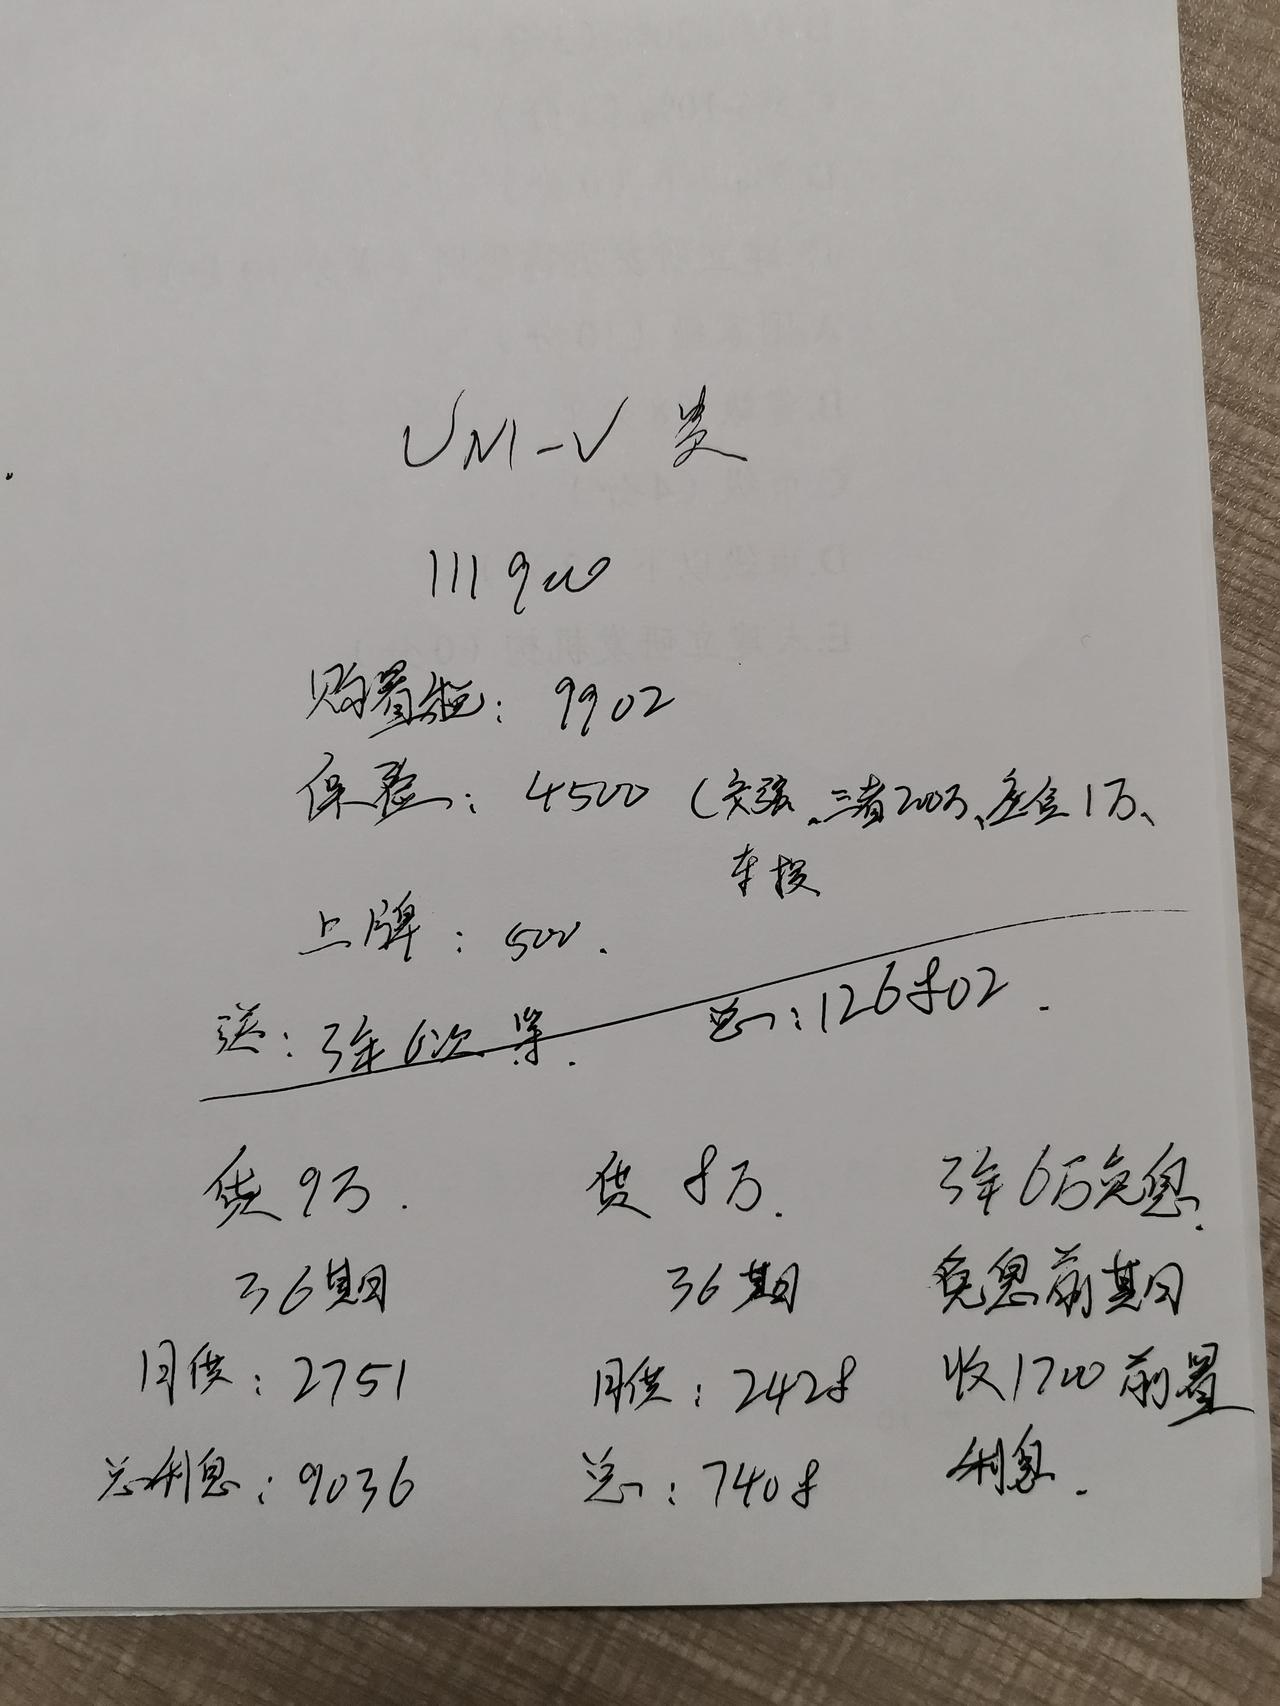 UNI-V 贵
111900
购置税: 9902
保险: 4500 (交强、三者200万、座位1万、
车损
上牌: 500.
送: 3年6次 等. 总: 126802.
贷9万. 贷8万. 3年6万免息.
36期 36期 免息前期
月供: 2751 月供: 2428 收1700前置
总利息: 9036 总: 7408 利息.